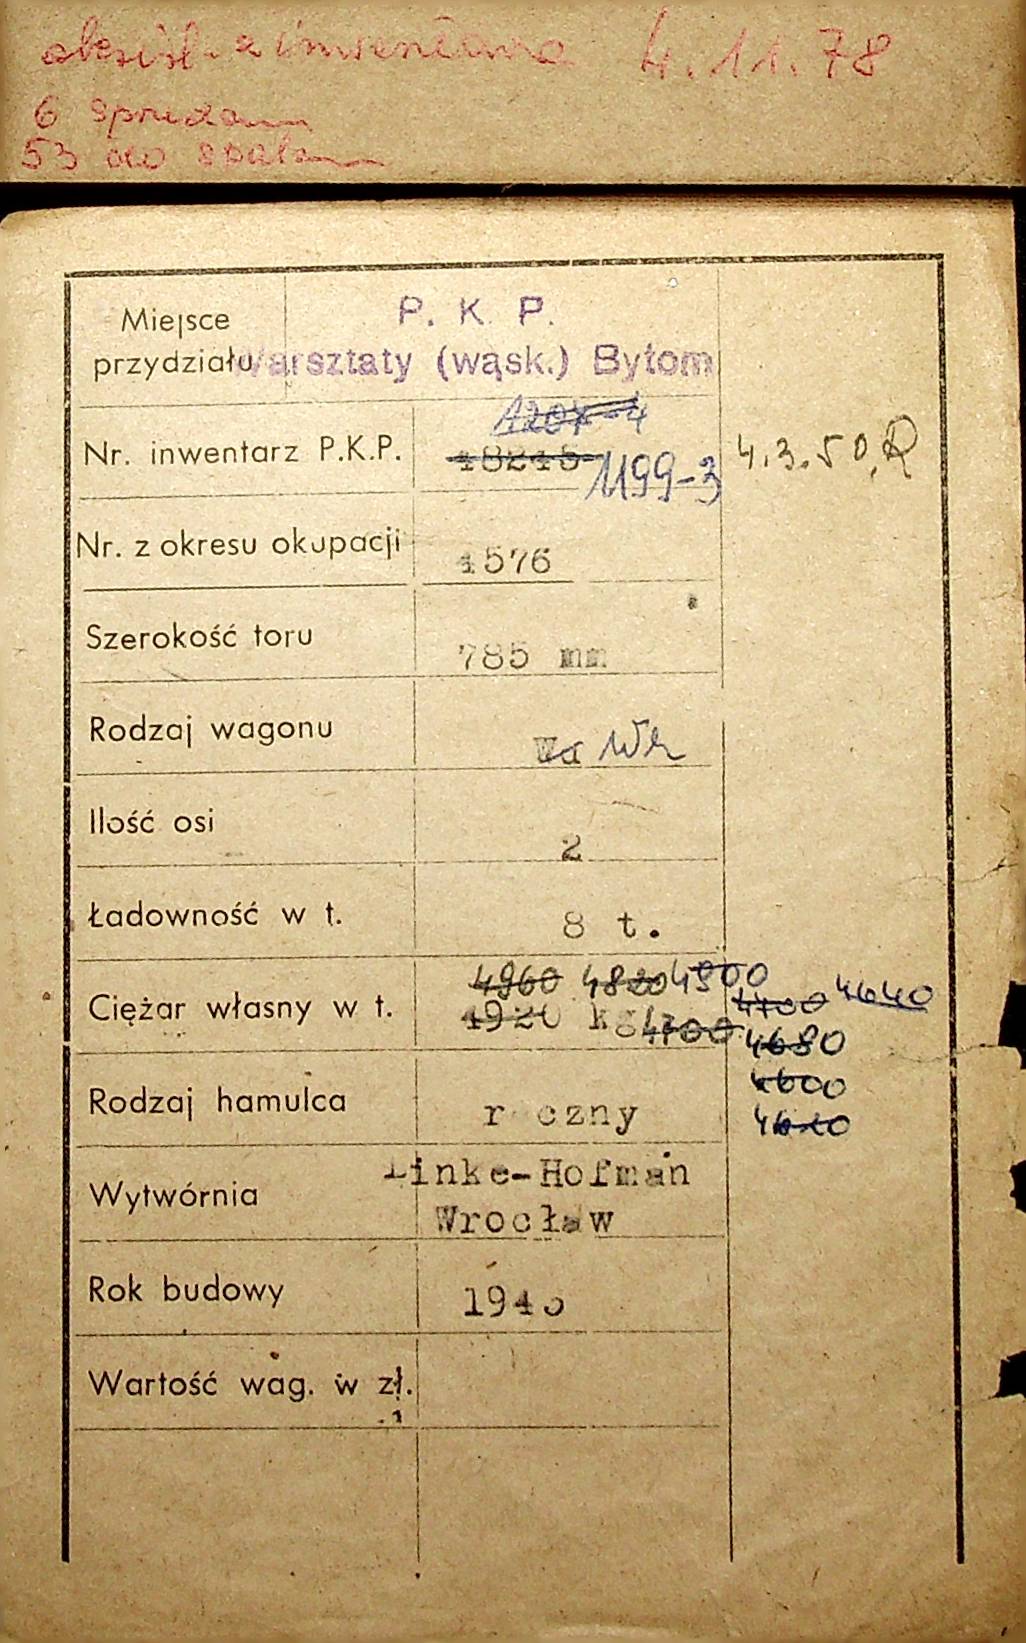 4.11.78
6
53 do
Miejsce przydziału
P. K. P.
Warsztaty (wąsk.) Bytom
1207-4
Nr. inwentarz P.K.P.
18248 1199-3
4.3.50.
Nr. z okresu okupacji 1576
Szerokość toru 785 mm
Rodzaj wagonu
Ilość osi 2
Ładowność w t. 8 t.
4960 4820 4800
Ciężar własny w t. 4920 kg 4700
4700 4640
4680
4600
4620
Rodzaj hamulca r czny
Wytwórnia Linke-Hofman
Wrocław
Rok budowy
Wartość wag. w zł.